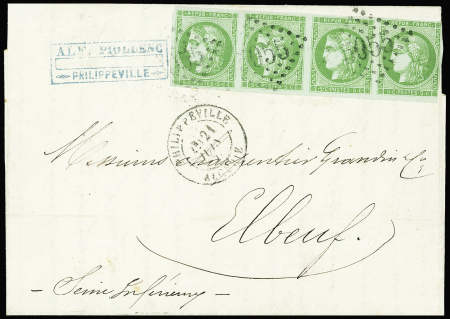 ALF. PIOLLENC
PHILIPPEVILLE
REPUB · FRANC · REPUB · FRANC · REPUB · FRANC · REPUB · FRANC ·
5·C POSTES 5·C 5·C POSTES 5·C 5·C POSTES 5·C 5·C POSTES 5·C
PHILIPPEVILLE
21
ALGERIE
Messieurs Charpentier Grandin & Cie
Elbeuf.
— Seine Inférieure —